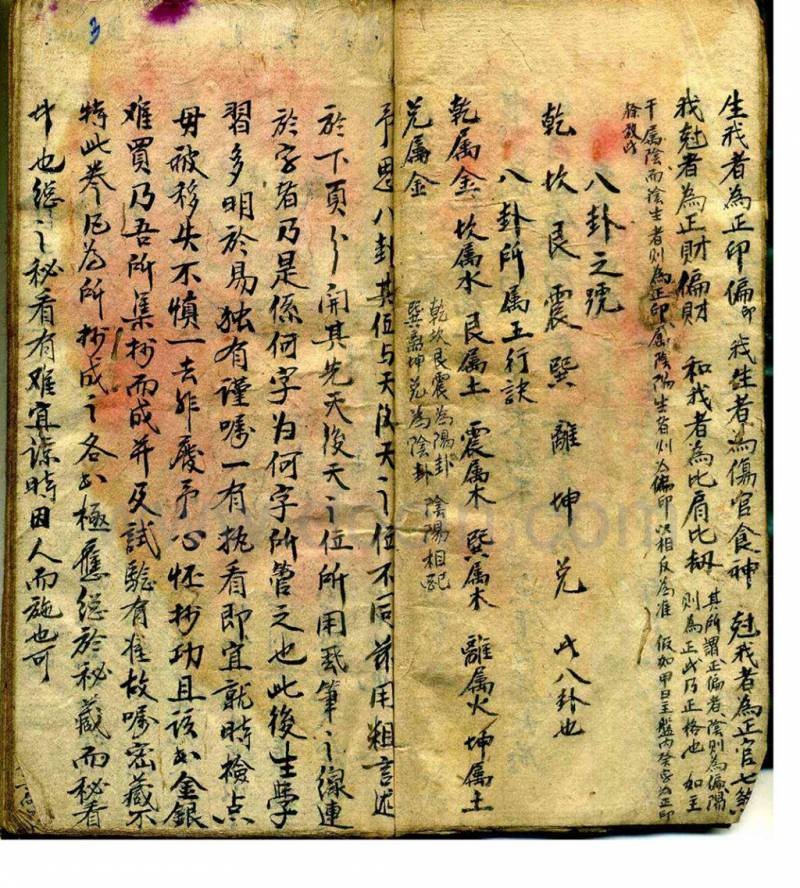 生我者為正印偏印 我生者為傷官食神 尅我者為正官七煞
我尅者為正財偏財 和我者為比肩比刼 其所謂正偏者陰則為偏陽
則為正此乃正格也 如主
干属陰而陰生者則為正印属陰陽生者则为偏印 相反為准 假如甲日主盤内癸字為正印
八卦之號
乾 坎 艮 震 巽 離 坤 兌 此八卦也
八卦所属五行訣
乾属金 坎属水 艮属土 震属木 巽属木 離属火 坤属土
兌属金
乾坎艮震為陽卦 陰陽相配
巽離坤兌為陰卦
予思八卦其位与天後天之位不同兹用粗言述
於下頁分開其先天後天之位所用 筆之線連
於字者乃是係何字为何字所管之也此後生學
習多明於易独有謹嘱一有执看即宜就時檢点
毋被移失不慎一去非廢予心怀抄功且该书金銀
难買乃吾所集抄而成并及試驗有准故嘱密藏不
特此卷凡为所抄成之各书極應總於秘藏而秘看
也總之秘看有难宜諒時因人而施也可
3